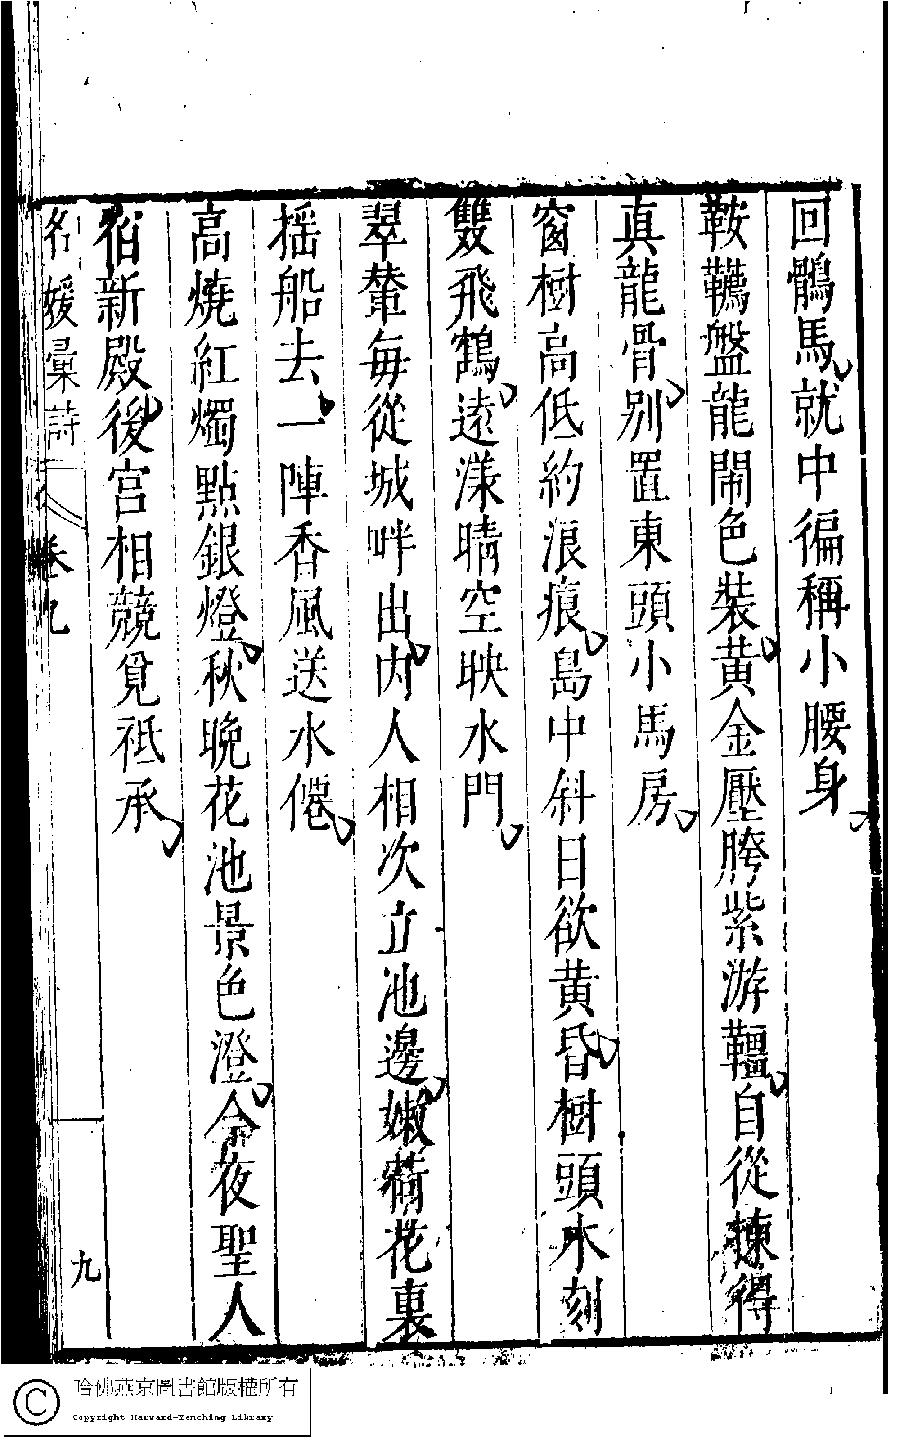 回鶻馬就中徧稱小腰身
鞍韉盤龍閙色裝黃金壓胯紫游韁自從揀得
真龍骨别置東頭小馬房
窗樹高低約浪痕島中斜日欲黃昏樹頭木刻
雙飛鶴遠漾晴空映水門
翠輦每從城畔出内人相次立池邊嫩荷花裏
摇船去一陣香風送水僊
高燒紅燭點銀燈秋晚花池景色澄今夜聖人
宿新殿後宫相競覓祗承
名媛彙詩
卷九
九
哈佛燕京圖書館版權所有
Copyright Harvard-Yenching Library